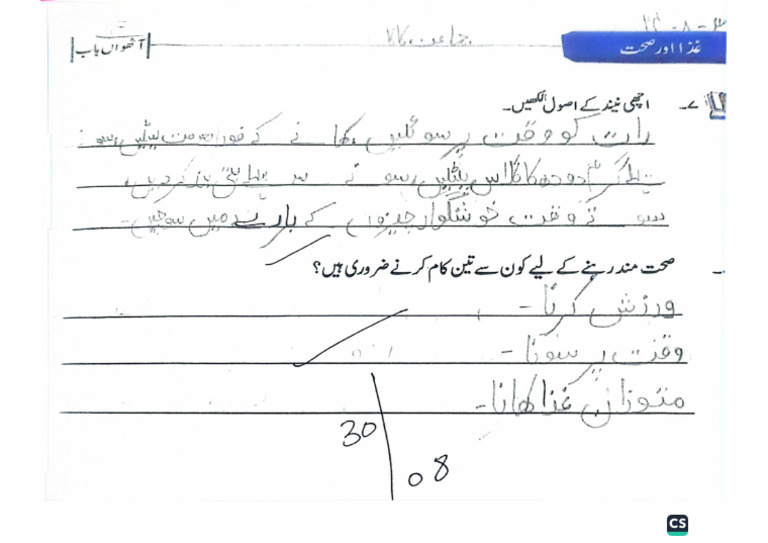 آٹھواں باب
جماعت
غذا اور صحت
۷۔ اچھی نیند کے اصول لکھیں۔
رات کو وقت پر سوئیں، کھانے کے فوراً مت لیٹیں، سونے
پہلے گرم دودھ کا گلاس پئیں، سونے سے پہلے بتی بند کر دیں،
سوتے وقت خوشگوار چیزوں کے بارے میں سوچیں۔
صحت مند رہنے کے لیے کون سے تین کام کرنے ضروری ہیں؟
ورزش کرنا۔
وقت پر سونا۔
متوازن غذا کھانا۔
30
08
CS